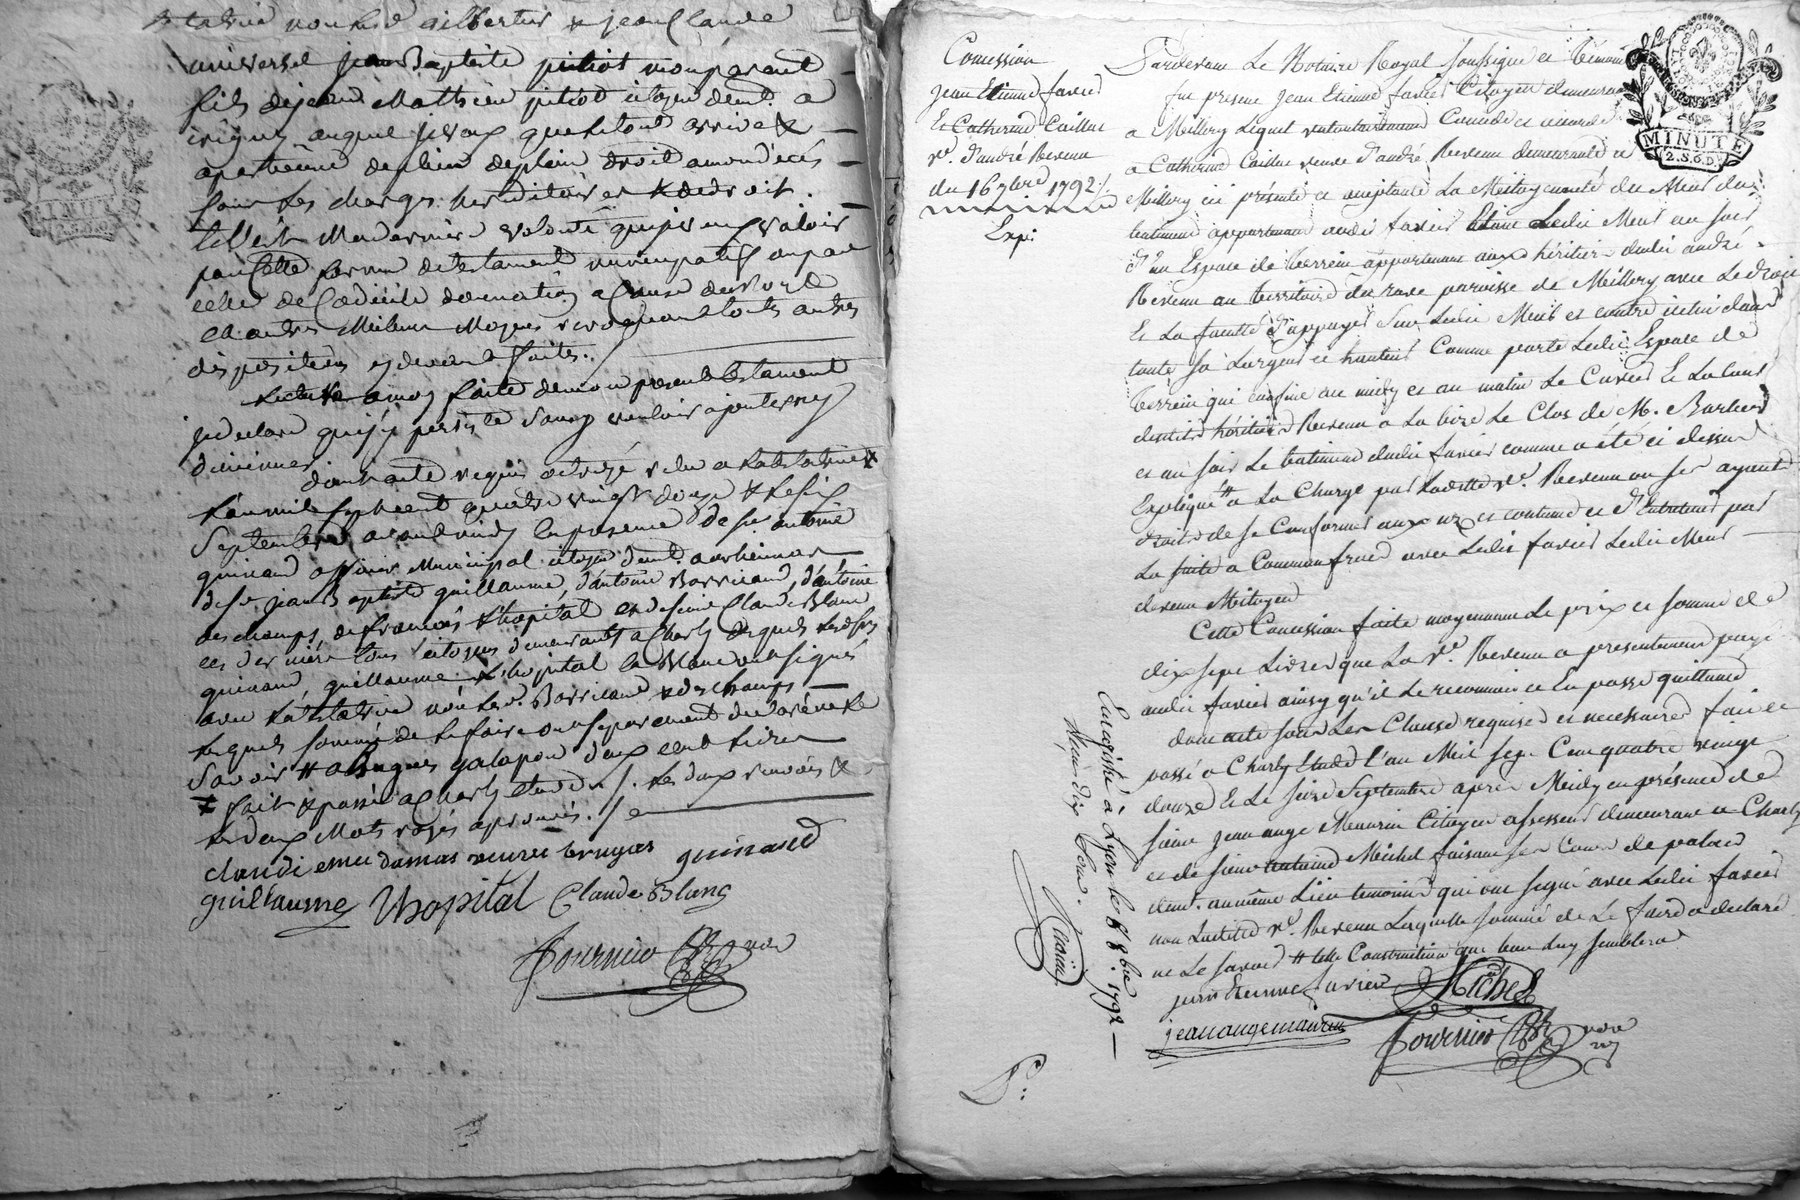 universel jean Baptiste pitiot mon parent
fils de jean Mathieu pitiot citoyen demt. a
irigny auquel je veux que le tout arrive &
apartienne de plein droit a mon décés
sous les charges hereditaires & de droit.
Telle est Ma derniere volonté que je veux valoir
par cette forme de testament nuncupatif ou par
celle de Codicile donnation a Cause de Mort
et autres Meilleurs Moyens revoquant toutes autres
dispositions cy devant faites./.
Lecture a moy faite de mon present testament
je declare que j'y persiste sans y vouloir ajouter ny
diminuer
dont acte requis octroyé & lu a la testatrice
L'an mil sept cent quatre vingt douze & le six
Septembre avant midy en presence de sr. antoine
guinand officier Municipal citoyen demt. a
de sr. jean Baptiste guillaume, d'antoine Barricand, d'antoine
deschamps, de françois Lhopital et de sieur Claude Blanc
ces derniers tous citoyens demeurants a Charly desquels lesdits srs.
guinand, guillaume, Lhopital & Blanc ont signés
avec la testatrice non les d. Barricand & deschamps
lesquels sommés de le faire ont separement declaré ne le
Savoir # a Bugues galapon deux cent livres
# fait & passé a Charly Etude ./. les deux renvois &
les deux Mots rayés aprouvés. /.
claudi emee damas veuve bruyas guinand
guillaume Lhopital Claude Blanc
Fournier nore
Concession
Jean Etienne favier
Et Catherine Caillat
ve. d'andré Reveux
du 16 7bre 1792./.
Exp:
Pardevant Le Notaire Royal soussigné et temoins
fut present Jean Etienne favier Citoyen demeurant
a Millery Lequel volontairement Concede et accorde
a Catherine Caillat veuve d'andré Reveux demeurante a
Millery ici présente et acceptante La Mitoyenneté du Mur du
batiment appartenant audit favier Ledit Mur au soir
d'un Espace de terrein appartenant aux héritiers dudit andré
Reveux au territoire du rave paroisse de Millery avec Le droit
Et La faculté d'appuyer Sur Ledit Mur et contre icelui dans
toute sa Largeur et hauteur Comme porte Ledit Espace de
terrein qui confine au midy et au matin Le Curier Et La Cour
desdits héritiers Reveux a La bize Le Clos de M. Barbier
et au soir Le batiment dudit favier comme a été ci dessus
Expliqué # a La Charge par Ladite ve. Reveux ou ses ayants
droits de se Conformer aux us et coutumes et d'Entretenir par
La suite a Commun frais avec Ledit favier Ledit Mur
devenu Mitoyen
Cette Concession faite moyennant Le prix et somme de
dix sept Livres que La ve. Reveux a presentement payé
audit favier ainsy qu'il Le reconnoit et En passe quittance
dont acte sous Les Clauses requises et necessaires fait et
passé a Charly Etude L'an Mil Sept Cent quatre vingt
douze Et Le Seize Septembre après Midy en présence de
sieur jean ange Maurin Citoyen assesseur demeurant a Charly
et de sieur Michel faisant ses Cours de
demt. au même Lieu temoins qui ont signé avec Ledit favier
non Ladite ve. Reveux Laquelle sommé de Le faire a declaré
ne Le savoir # telle Construction que bon luy semblera
jean Etienne favier Michel
jean ange maurin Fournier nore
Enregistré à Lyon le 6 8bre 1792
Reçu dix Sous.